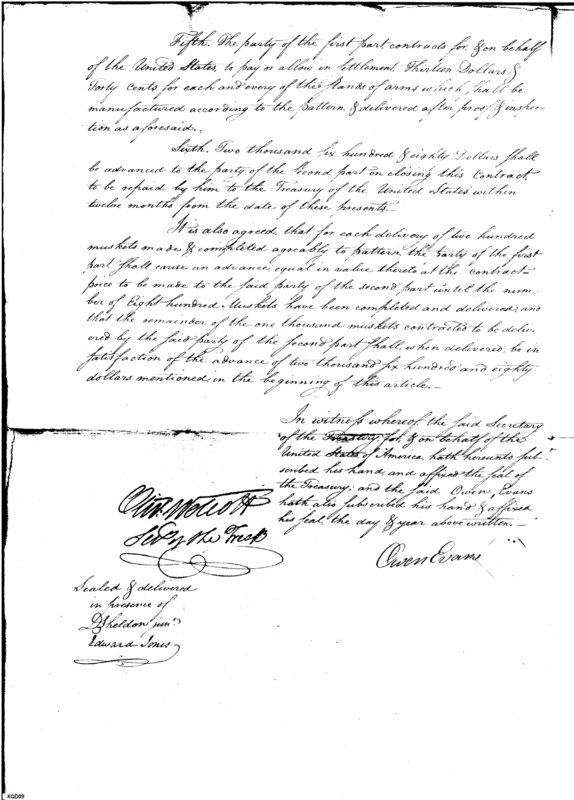 Fifth. The party of the first part contracts for, & on behalf
of the United States, to pay or allow in settlement, Thirteen Dollars &
Forty Cents for each and every of the stands of arms which shall be
manufactured according to the pattern, & delivered after proof & inspec-
tion as aforesaid.
Sixth. Two thousand six hundred & eighty Dollars shall
be advanced to the party of the second part on closing this Contract
to be repaid by him to the Treasury of the United States within
twelve months from the date of these presents.
It is also agreed, that for each delivery of two hundred
muskets made & completed agreably to pattern, the party of the first
part shall cause an advance, equal in value thereto at the contract
price to be made to the said party of the second part until the num-
ber of Eight hundred Muskets have been completed and delivered; and
that the remainder of the one thousand muskets contracted to be deliv-
ered by the said party of the second part shall, when delivered, be in
satisfaction of the advance of two thousand six hundred and eighty
dollars mentioned, in the beginning of this article.
In witness whereof, the said Secretary
of the Treasury, for, & on behalf of the
United States of America, hath hereunto sub-
scribed his hand, and affixed the seal of
the Treasury; and the said Owen Evans
hath also subscribed his hand & affixed
his seal, the day & year above written.
Oliv. Wolcott
Secy of the Treas
Owen Evans
Sealed & delivered
in presence of
D Sheldon junr.
Edward Jones
XQD09